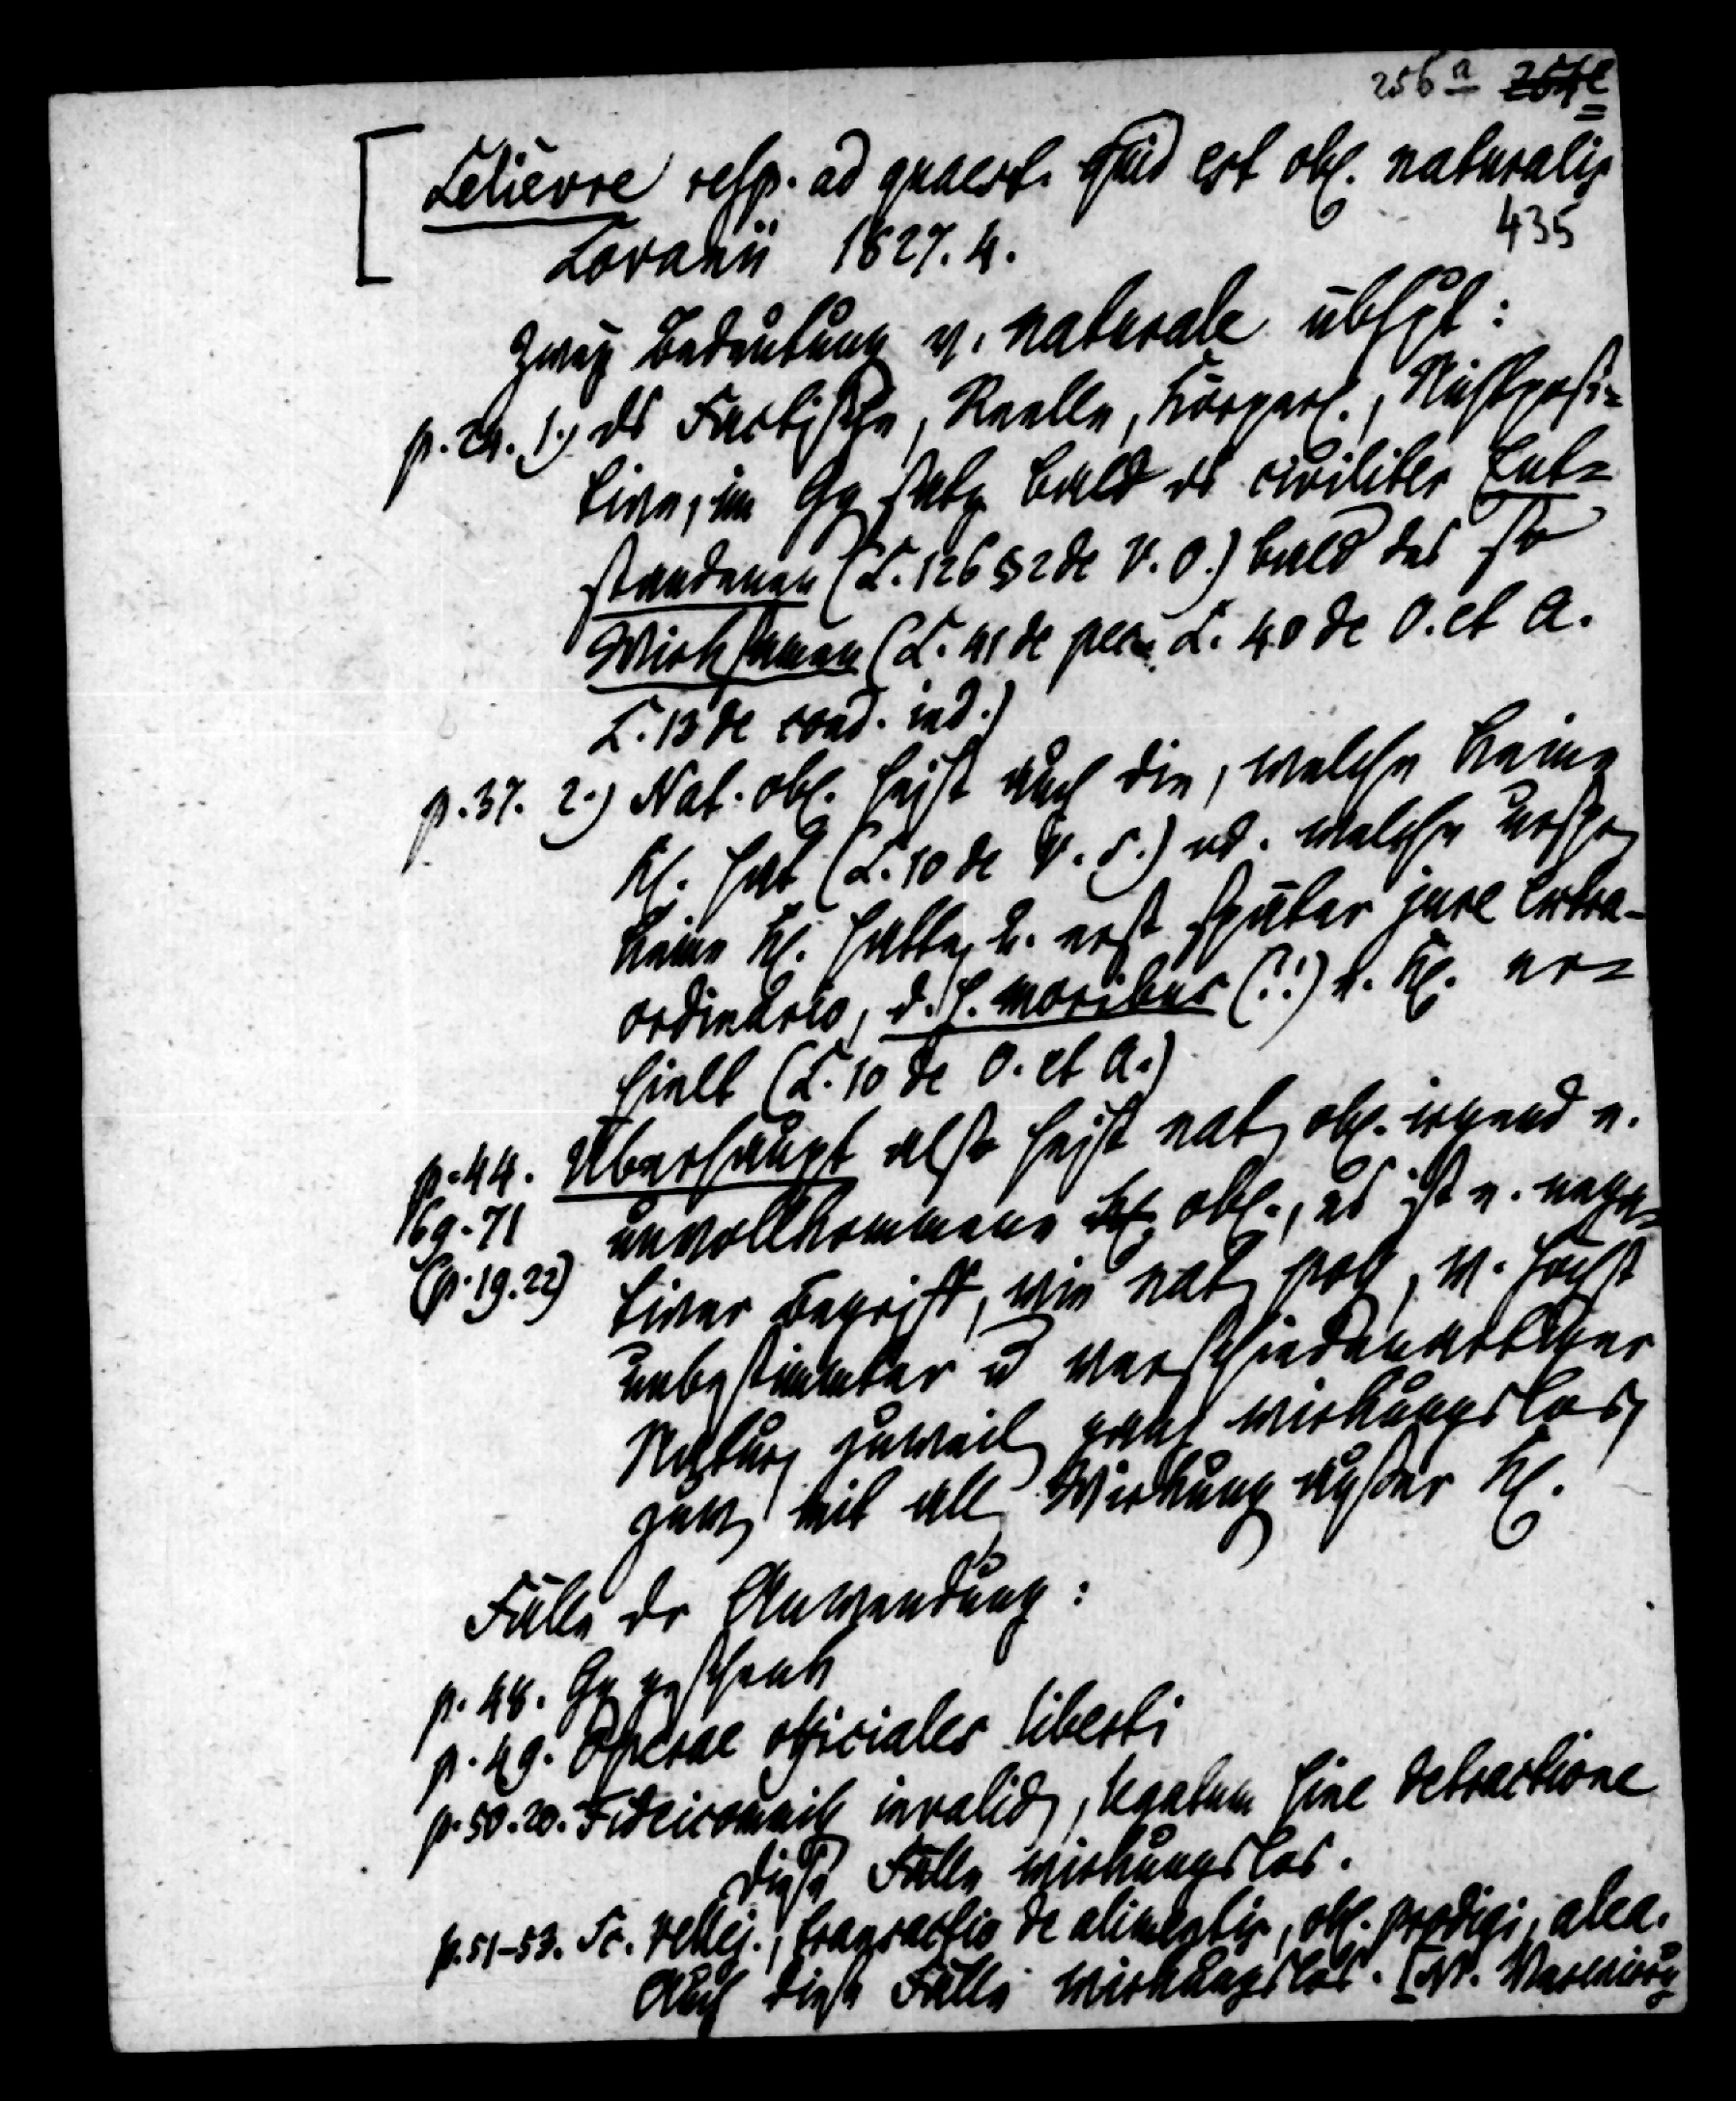 256 a 254e
Lelievre resp. ad quaest. quid est obl. naturalis
Lovanii 1827. 4. 435
Zwey Bedeutung v. naturale überhpt:
p. 24. 1.) ds Factische, Reelle, Körperl., Nichtposi=
tive, im Ggsatz bald ds civiliter Ent=
standenen (L. 126 § 2 de V. O.) bald des so
Wirksamen (L. 41 de pec. L. 40 de O. et A.
L. 13 de cond. ind.)
p. 37. 2.) Nat. obl. heist auch die, welche keine
Kl. hat (L. 10 de V. S.) od. welche urspr
keine Kl. hatte, u. erst später jure extra-
ordinario, d. h. moribus (?!) e. Kl. er=
hielt (L. 10 de O. et A.)
p. 44. Überhaupt also heist nat obl. irgend e.
69-71 unvollkommene obl., es ist e. nega=
(p. 19. 22) tiver Begriff, wie nat poss, v. höchst
unbestimmter u verschiedenartiger
Natur, zuweil ganz wirkungslos,
zuw mit all Wirkung außer Kl.
Fälle dr Anwendung:
p. 48. Ggeschenk
p. 49. Operae officiales liberti
p. 50. 20. Fideicommiss invalid, legatum sine detractione
diese Fälle wirkungslos.
p. 51-53. Sc. Vellej., transactio de alimentis, obl. prodigi, alea.
Auch diese Fälle wirkungslos. [